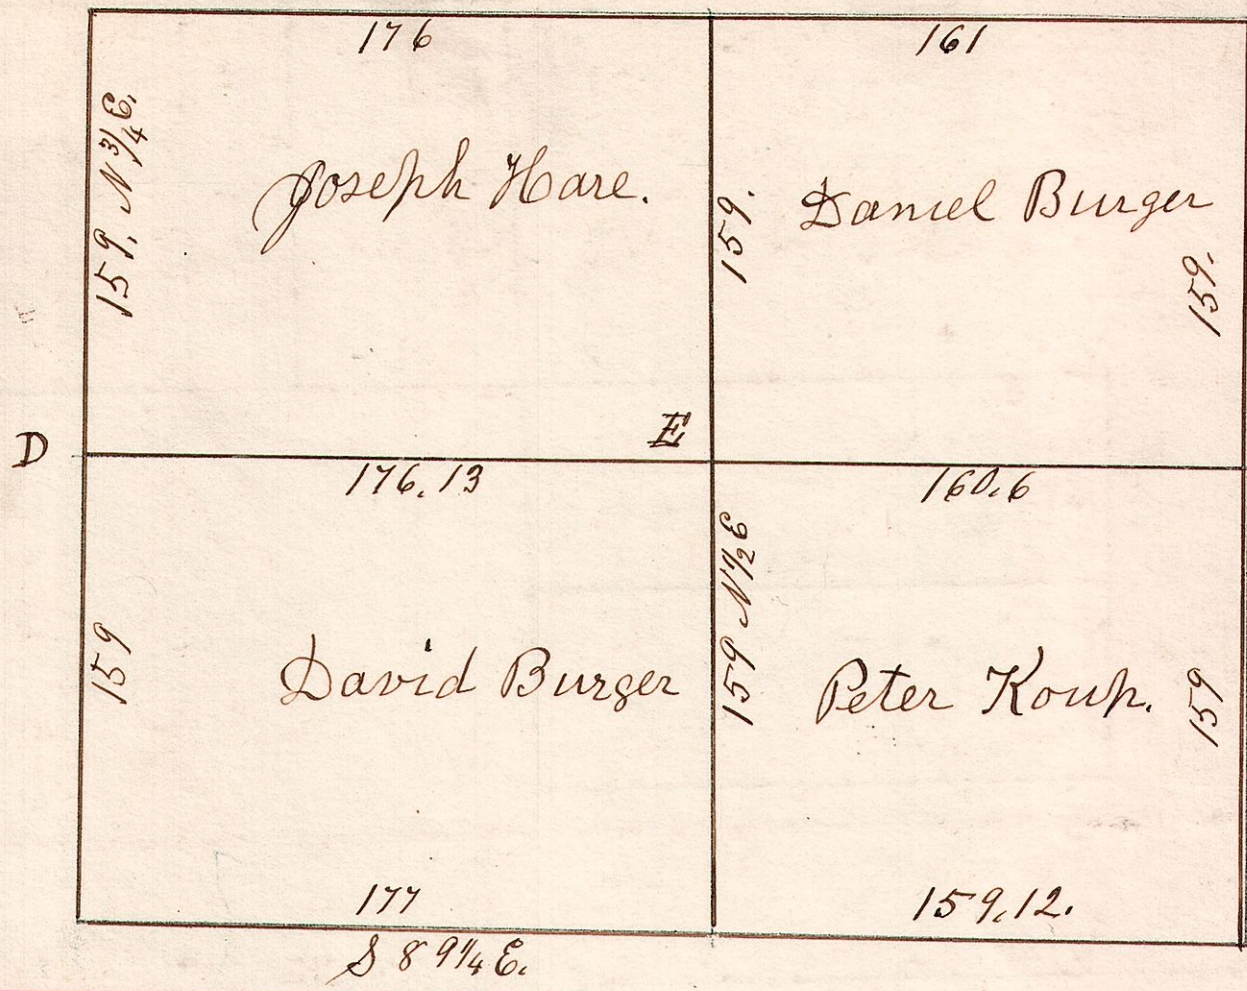 176
161
159. N 3/4 E.
Joseph Hare.
159.
Daniel Burger
159.
D
E
176.13
160.6
159 N 1/2 E
159
David Burger
Peter Koup.
159
177
159.12.
S 89 1/4 E.